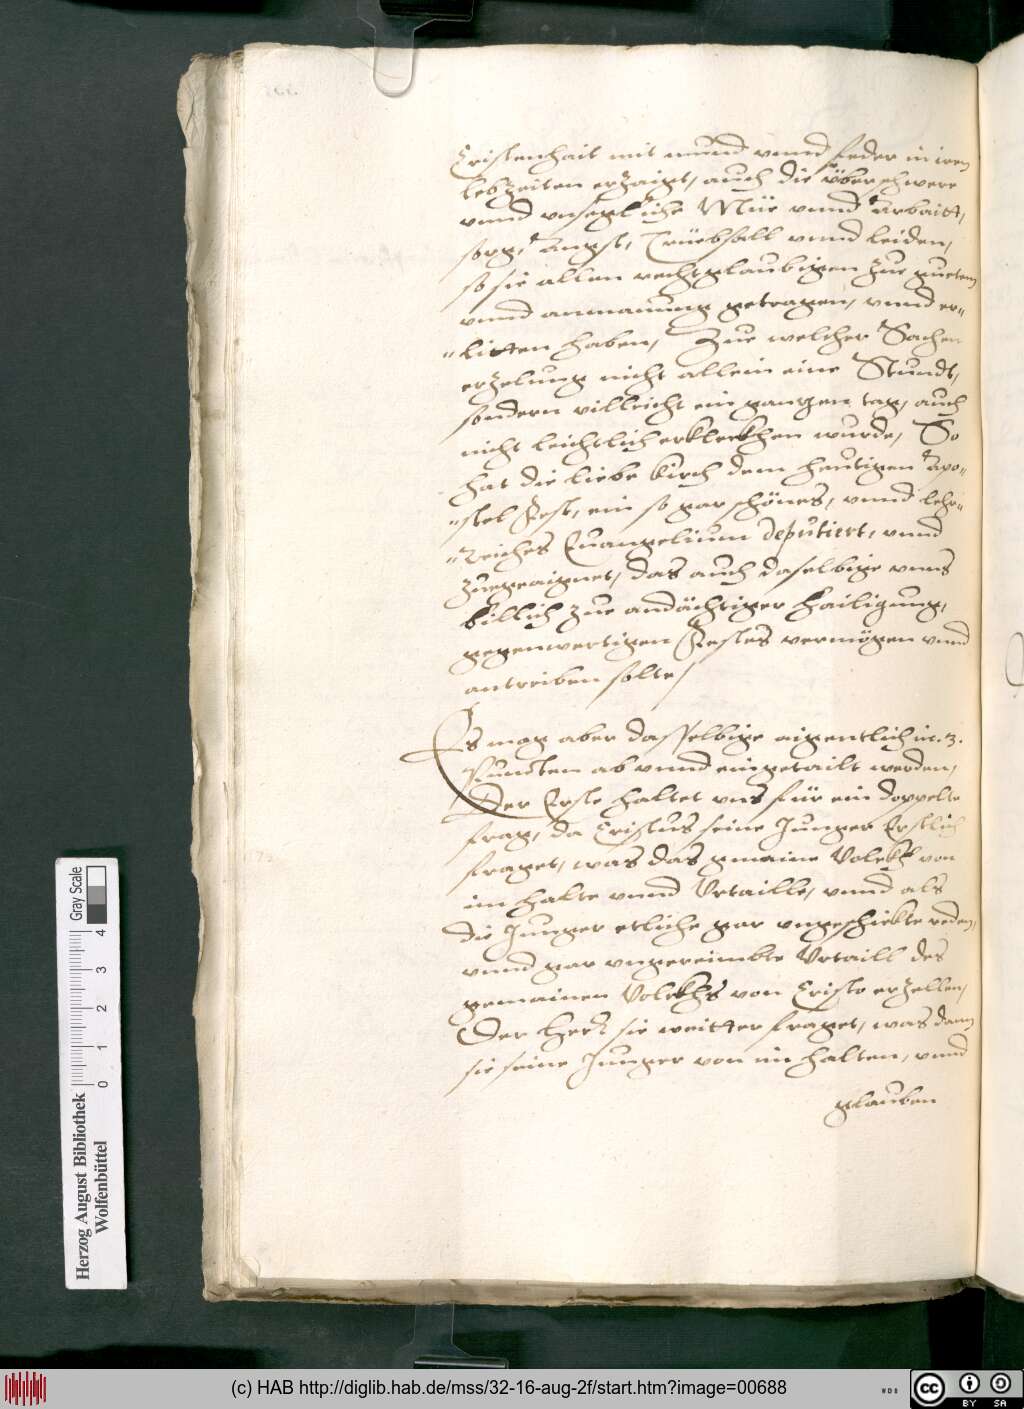 Cristenhait mit mund vnnd feder in iren
lebZeiten erZaigt, auch die überschwere
vnnd vnsegliche Müe vnnd Arbaitt,
sorg, Angst, Trüebsall vnnd leiden,
so sie allen rechtglaubigen Zue guetem
vnnd anmanung getragen, vnnd er-
-litten haben, Zue welcher Sachen
erZelung nicht allein eine Stundt,
sondern villeicht ein gantzen tag, auch
nicht leichtlich erkleckhen wurde, So
hat die liebe kirch dem heutigen Apo-
-stel Fest, ein so gar schönes, vnnd lehr-
-Reiches Euangelium deputiert, vnnd
Zuegeaignet, das auch daselbige vnns
billich Zue andächtiger hailigung,
gegenwertigen Festes vermögen vnnd
antreiben solte/
Es mag aber dasselbige aigentlich in .3.
Puncten ab vnnd eingetailt werden,
Der Erste haltet vns für ein doppelte
frag, da Cristus seine Junger Erstlich
fraget, was das gmaine Volckh von
im halte vnnd Vrtaille, vnnd als
die Junger etliche gar vngeschickte reden,
vnnd gar vngereimbte Vrtaill des
gemainen Volckhs von Cristo erZellen,
Der Herr sie weitter fraget, was dann
sie seine Junger von im halten, vnnd
glauben
Herzog August Bibliothek
Wolfenbüttel
0 1 2 3 4
Gray Scale
(c) HAB http://diglib.hab.de/mss/32-16-aug-2f/start.htm?image=00688
WDB
cc BY SA